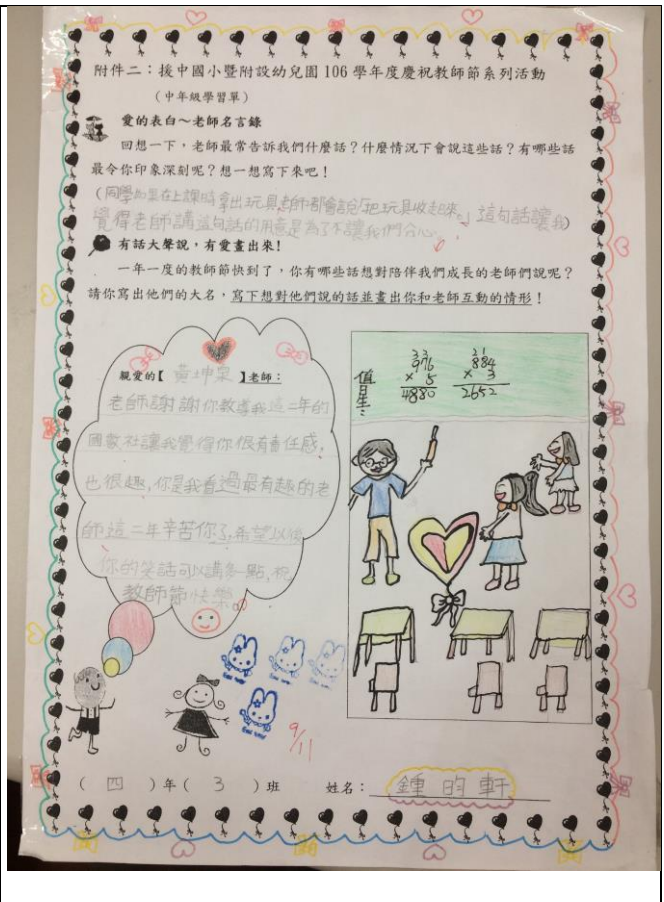 附件二：援中國小暨附設幼兒園 106 學年度慶祝教師節系列活動
（中年級學習單）
愛的表白～老師名言錄
回想一下，老師最常告訴我們什麼話？什麼情況下會說這些話？有哪些話
最令你印象深刻呢？想一想寫下來吧！
(同學如果在上課時拿出玩具老師都會說「把玩具收起來。」這句話讓我)
覺得老師講這句話的用意是為了不讓我們分心。
有話大聲說，有愛畫出來！
一年一度的教師節快到了，你有哪些話想對陪伴我們成長的老師們說呢？
請你寫出他們的大名，寫下想對他們說的話並畫出你和老師互動的情形！
親愛的【黃坤泉】老師：
老師謝謝你教導我這二年的
國數社讓我覺得你很有責任感，
也很趣，你是我看過最有趣的老
師這二年辛苦你了，希望以後
你的笑話可以講多一點，祝
教師節快樂。
值日生：
3 3
976
× 5
4880
2 1
884
× 3
2652
9/11
（ 四 ）年（ 3 ）班 姓名：鍾昀軒